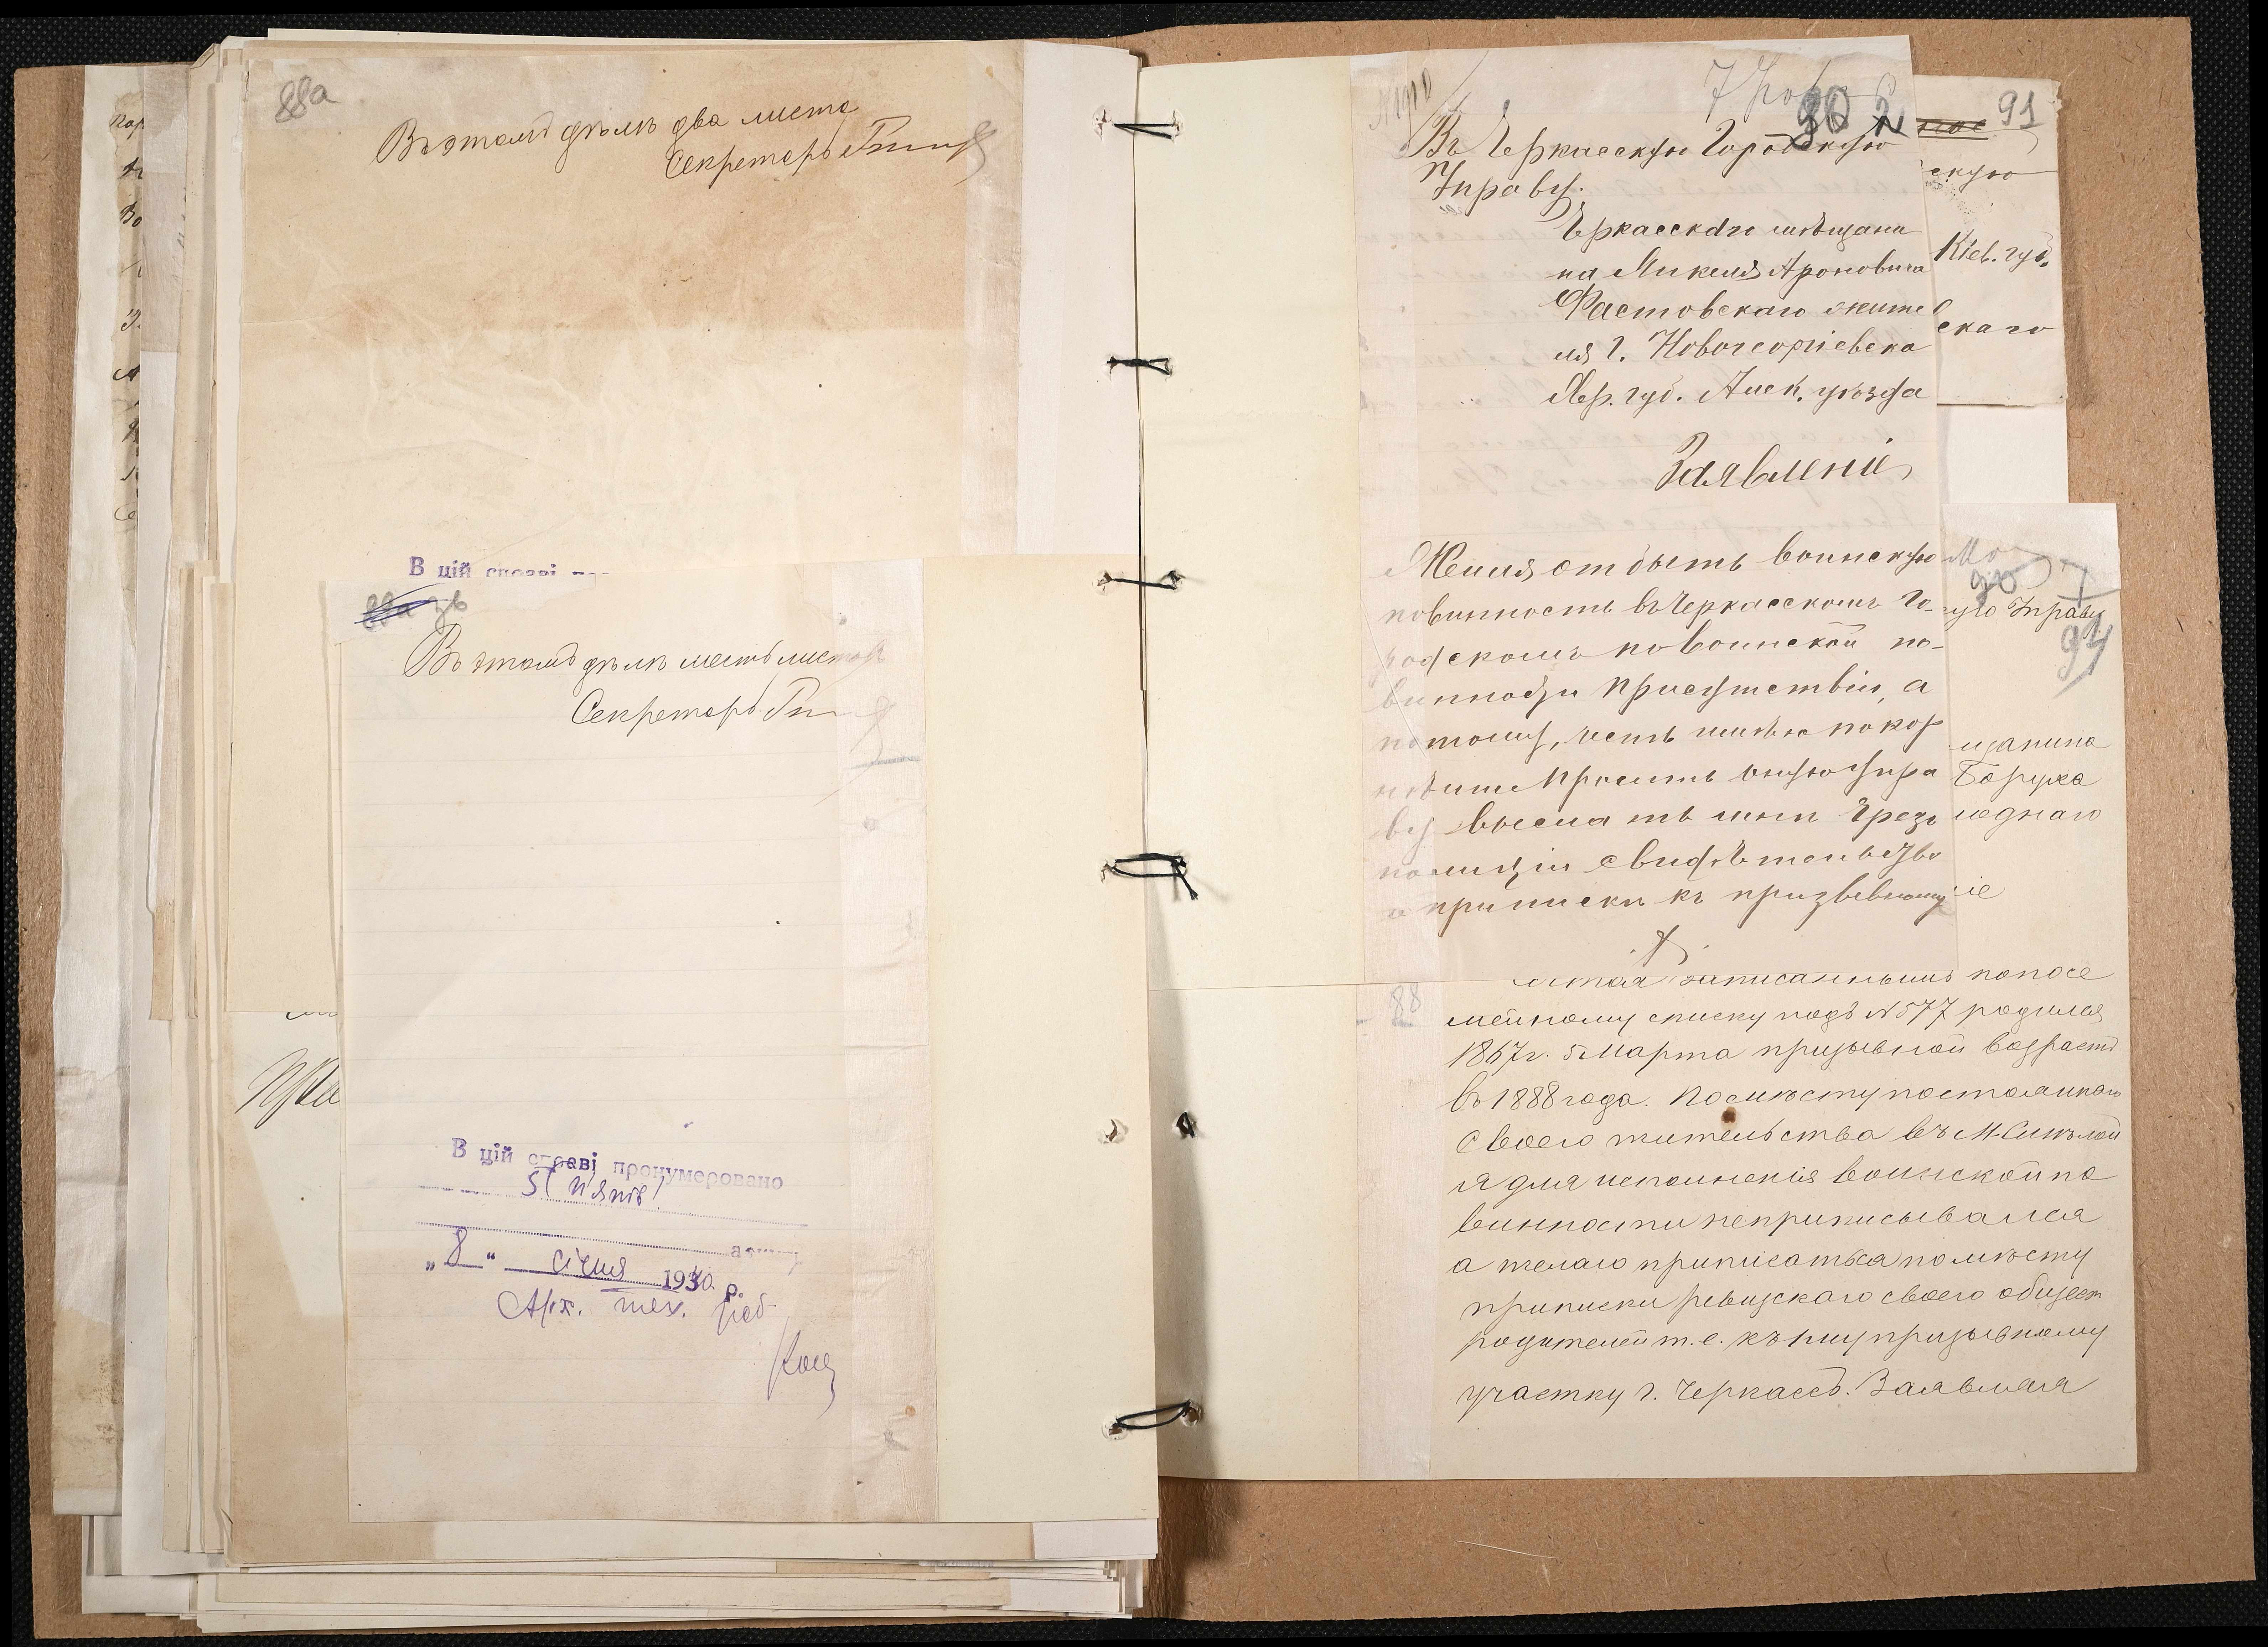 88а
Въ этомъ дѣлѣ два листа
Секретарь
В цій справі
Въ этомъ дѣлѣ шесть листовъ
Секретарь
В цій справі пронумеровано
5 (п'ять)
"8" січня 1940. р.
Арх. тех. роб.
90
Въ Черкасскую Городскую
Управу.
Черкасскаго мѣщани
на Микеля Ароновича
Фастовскаго жите
ля г. Новогеоргіевска
Хер. губ. Алек. уѣзда
Заявленіе
Желая отбыть воинскую
повинность въ Черкасскомъ Го-
родскомъ по воинской по-
винности Присутствіи, а
потому, честь имѣю покор
нѣйше просить оную Упра
ву выслать мнѣ чрезъ
полицію свидѣтельство
о приписки къ призывному
91
скую
Кіев. губ.
скаго
Управу
94
щанина
Боруха
іе
записаннымъ по посе
мейному списку подъ №577 родился
1867г. 5 Марта призывной возрастъ
въ 1888 года. По мѣсту постоянного
своего жительства въ М. Смѣлой
я для исполненія воинской по
винности неприписывался
а желаю приписаться по мѣсту
приписки ревизскаго своего общест
родителей т. е. къ 1му призывному
участку г. Черкассъ. Заявляя
88